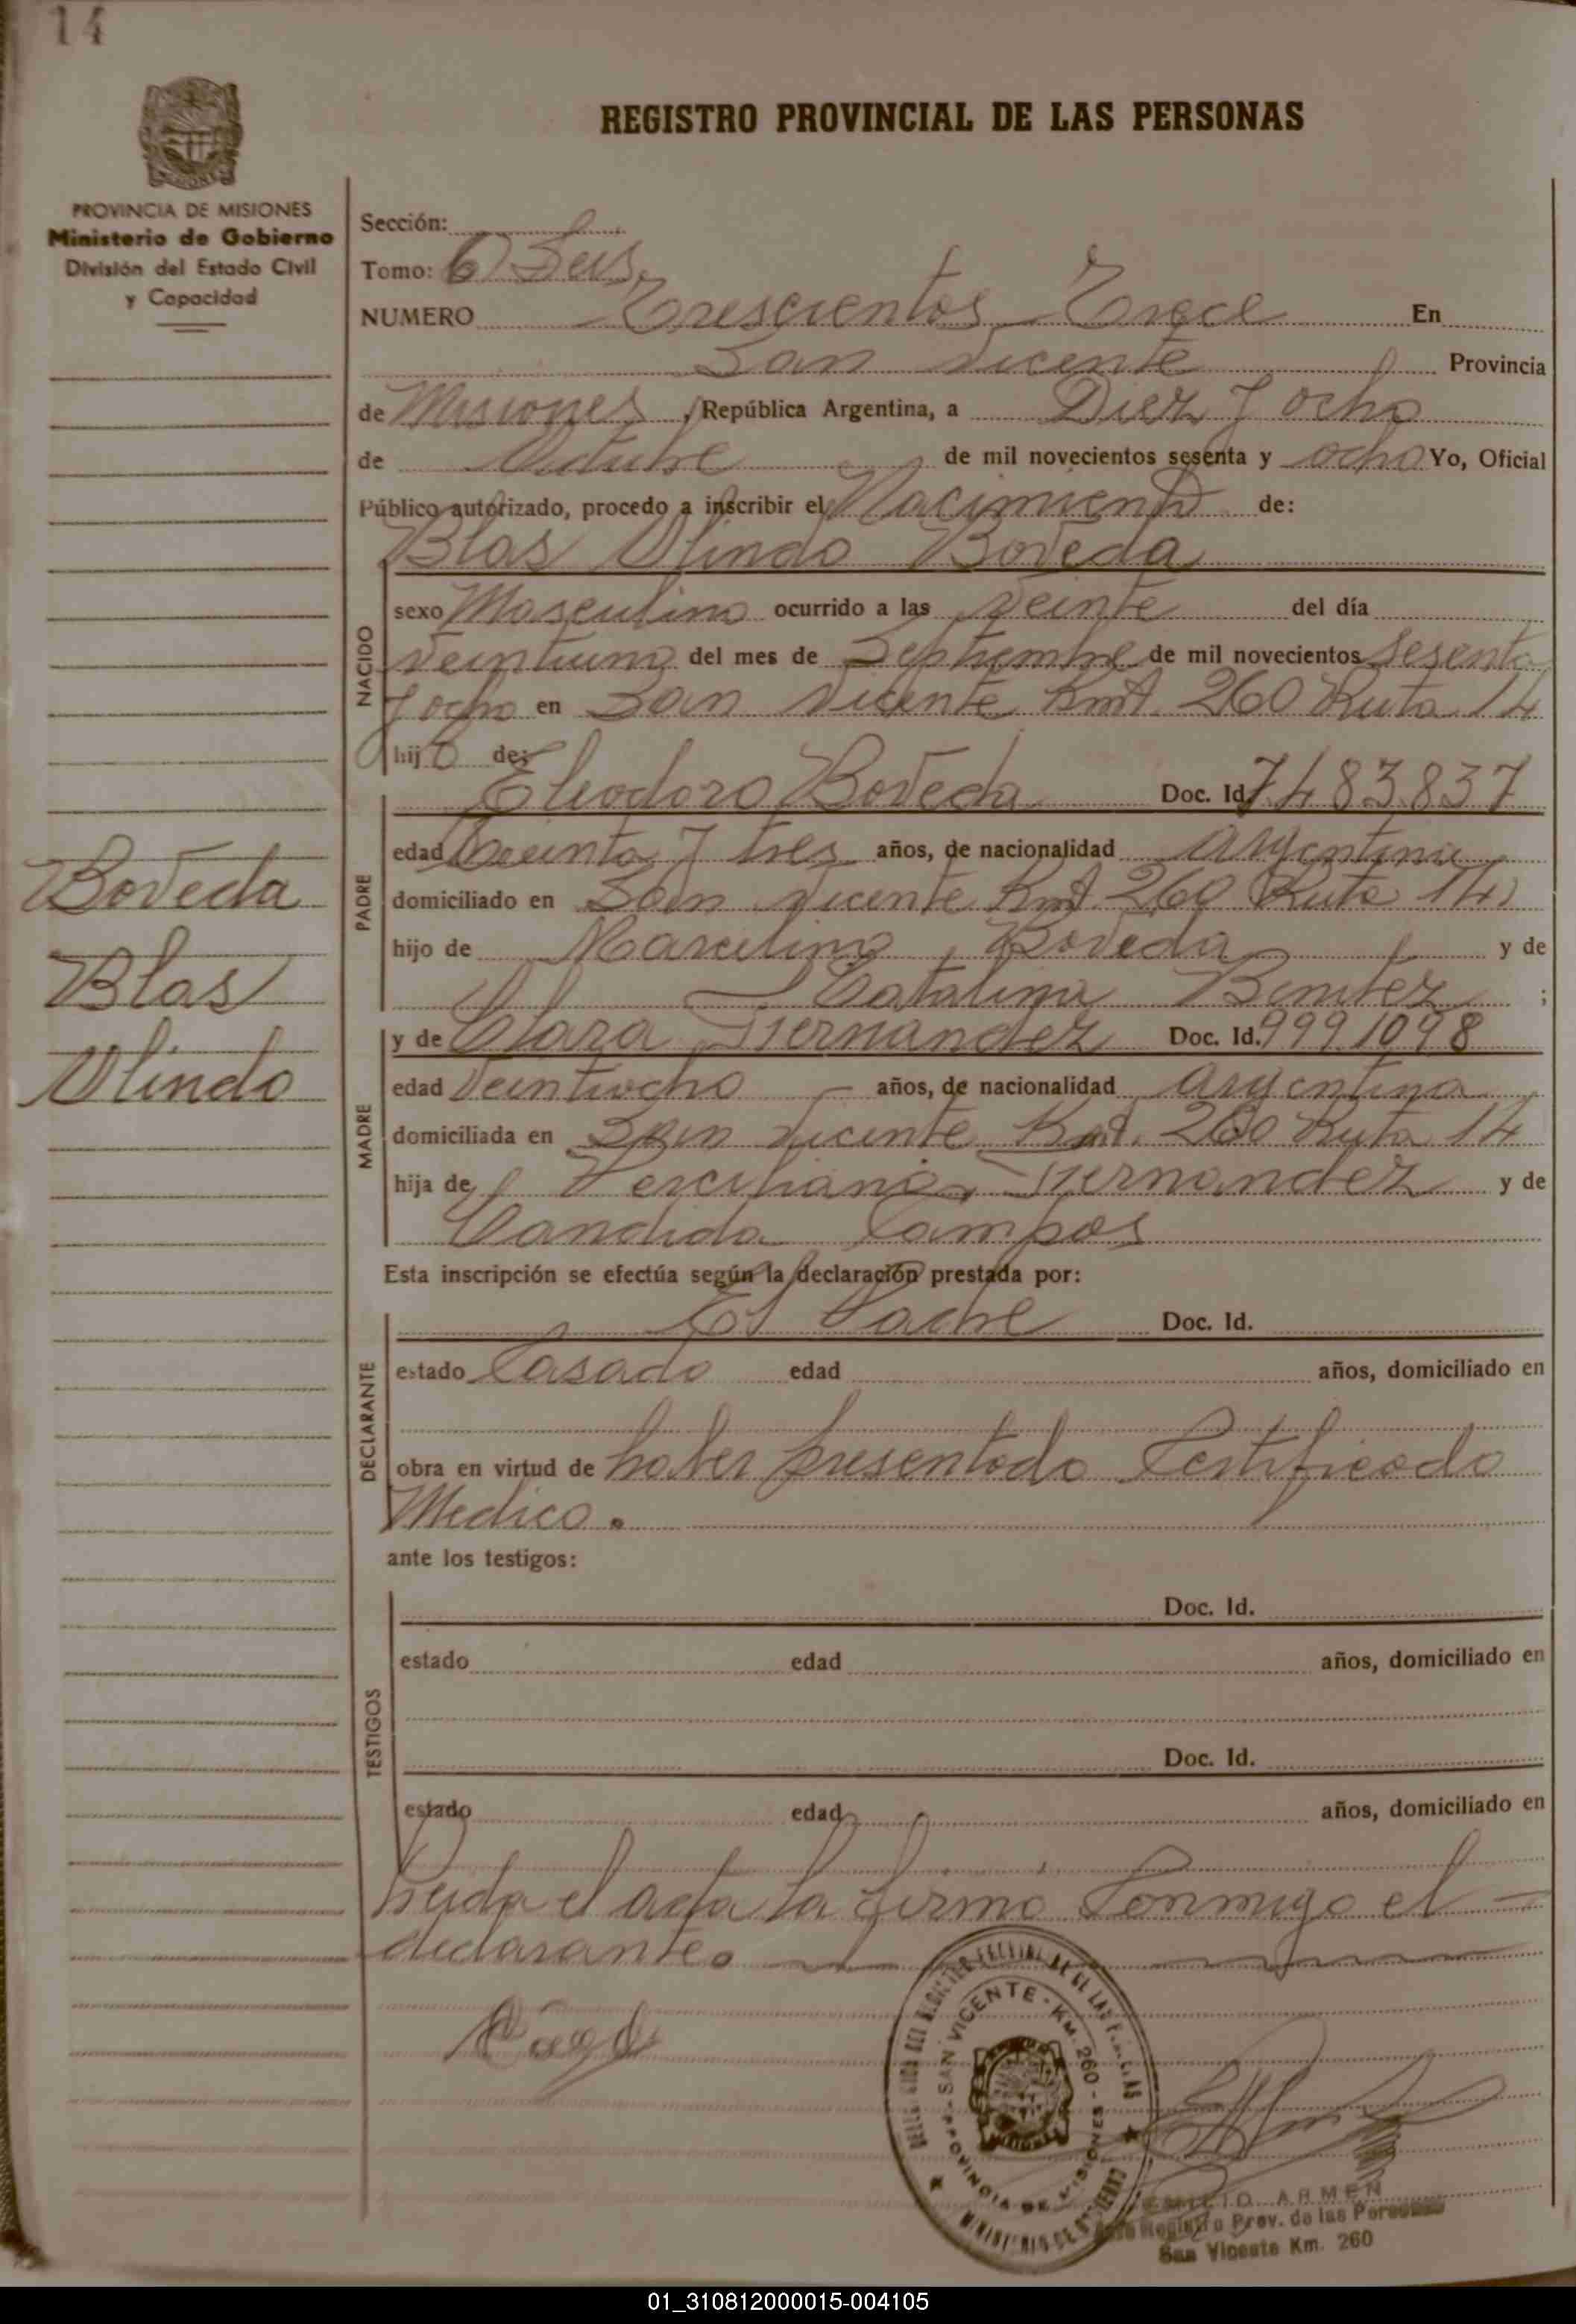 14
REGISTRO PROVINCIAL DE LAS PERSONAS
PROVINCIA DE MISIONES
Ministerio de Gobierno
División del Estado Civil
y Capacidad
Sección:
Tomo: 6) Seis.
NUMERO Trescientos Trece En
San Vicente Provincia
de Misiones, República Argentina, a Diez y ocho
de Octubre de mil novecientos sesenta y ocho Yo, Oficial
Público autorizado, procedo a inscribir el Nacimiento de:
Blas Olindo Boveda
NACIDO
sexo Masculino ocurrido a las veinte del día
veintiuno del mes de Septiembre de mil novecientos sesenta
y ocho en San Vicente Kmt. 260 Ruta 14
hijo de:
PADRE
Eliodoro Boveda Doc. Id. 7.483.837
edad treinta y tres años, de nacionalidad argentina
domiciliado en San Vicente Kmt. 260 Ruta 14
hijo de Marcelino Boveda y de
Catalina Benitez ;
Boveda
Blas
Olindo
MADRE
y de Clara Fernandez Doc. Id. 999.1098
edad veintiocho años, de nacionalidad argentina
domiciliada en San Vicente Kmt. 260 Ruta 14
hija de Fernandez y de
Candida Campos
Esta inscripción se efectúa según la declaración prestada por:
DECLARANTE
El Padre Doc. Id.
estado Casado edad años, domiciliado en
obra en virtud de haber presentado Certificado
Medico.
ante los testigos:
TESTIGOS
Doc. Id.
estado edad años, domiciliado en
Doc. Id.
estado edad años, domiciliado en
Leida el acta la firmo Conmigo el
declarante.
SAN VICENTE - KM. 260 -
PROVINCIA DE MISIONES
EMILIO ARMEN
Registro Prov. de las Personas
San Vicente Km. 260
01_310812000015-004105